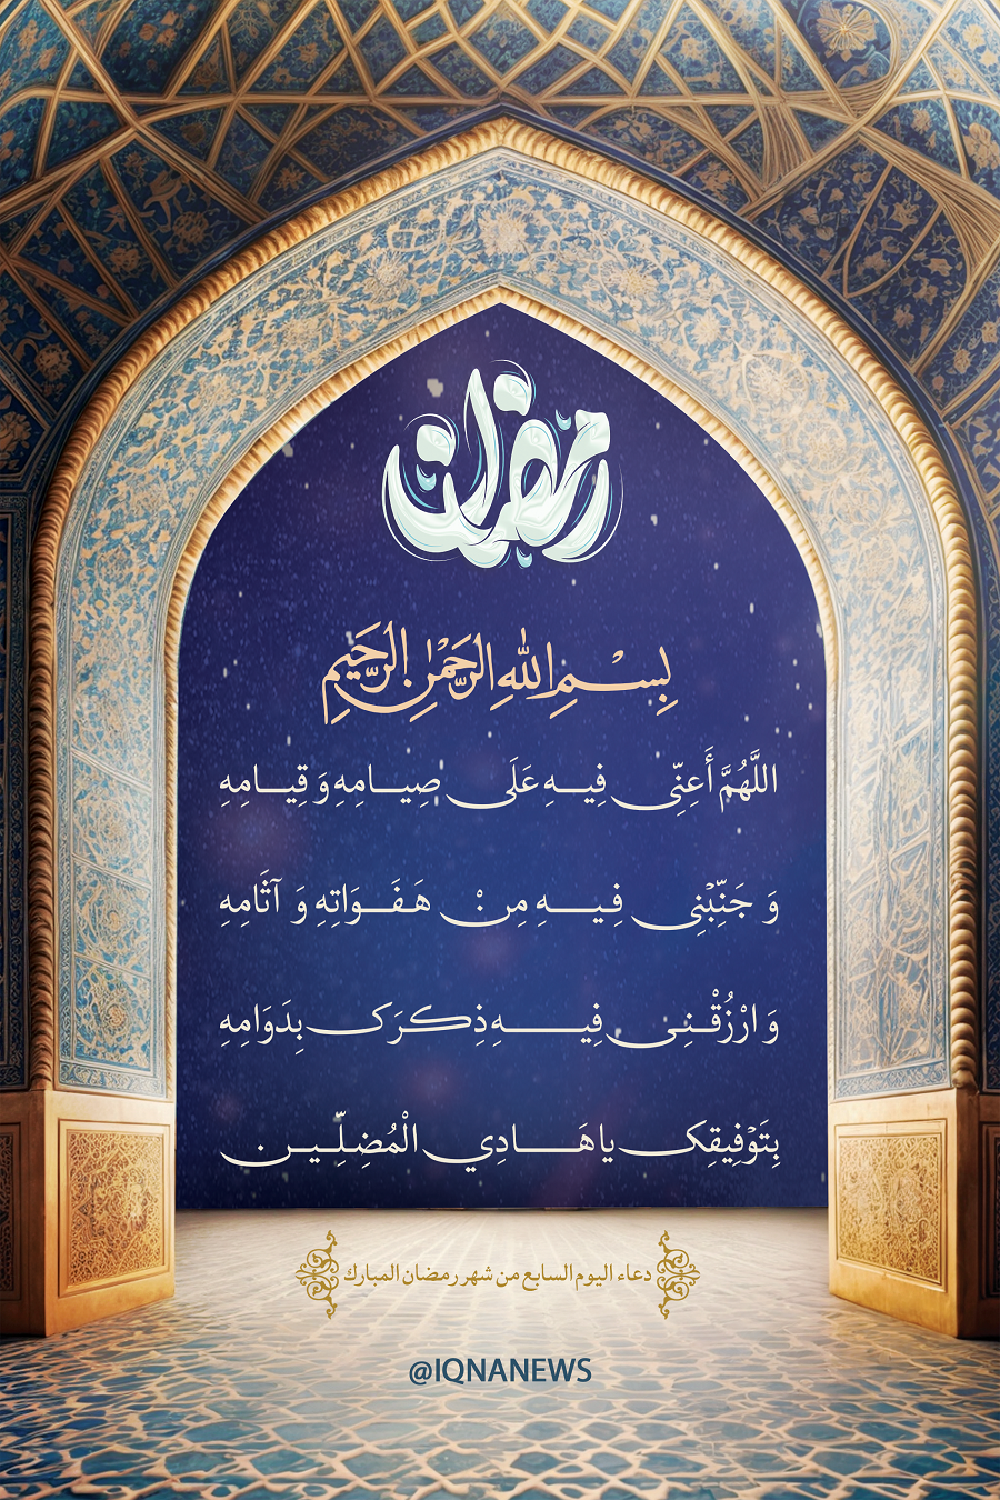 رمضان
بِسْمِ اللهِ الرَّحْمٰنِ الرَّحِيمِ
اللَّهُمَّ أَعِنِّي فِيهِ عَلَى صِيَامِهِ وَ قِيَامِهِ
وَ جَنِّبْنِي فِيهِ مِنْ هَفَوَاتِهِ وَ آثَامِهِ
وَ ارْزُقْنِي فِيهِ ذِكْرَک بِدَوَامِهِ
بِتَوْفِيقِک يا هَادِي الْمُضِلِّين
دعاء اليوم السابع من شهر رمضان المبارك
@IQNANEWS